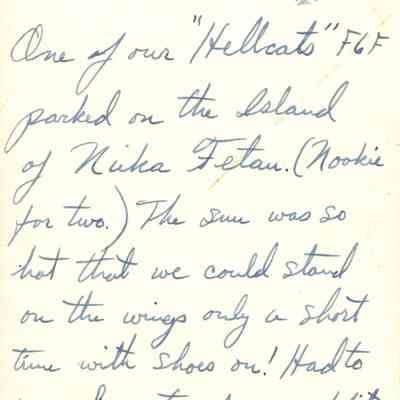 One of our "Hellcats" F6F
parked on the Island
of Nuka Fetau. (Nookie
for two.) The sun was so
hot that we could stand
on the wings only a short
time with shoes on! Had to